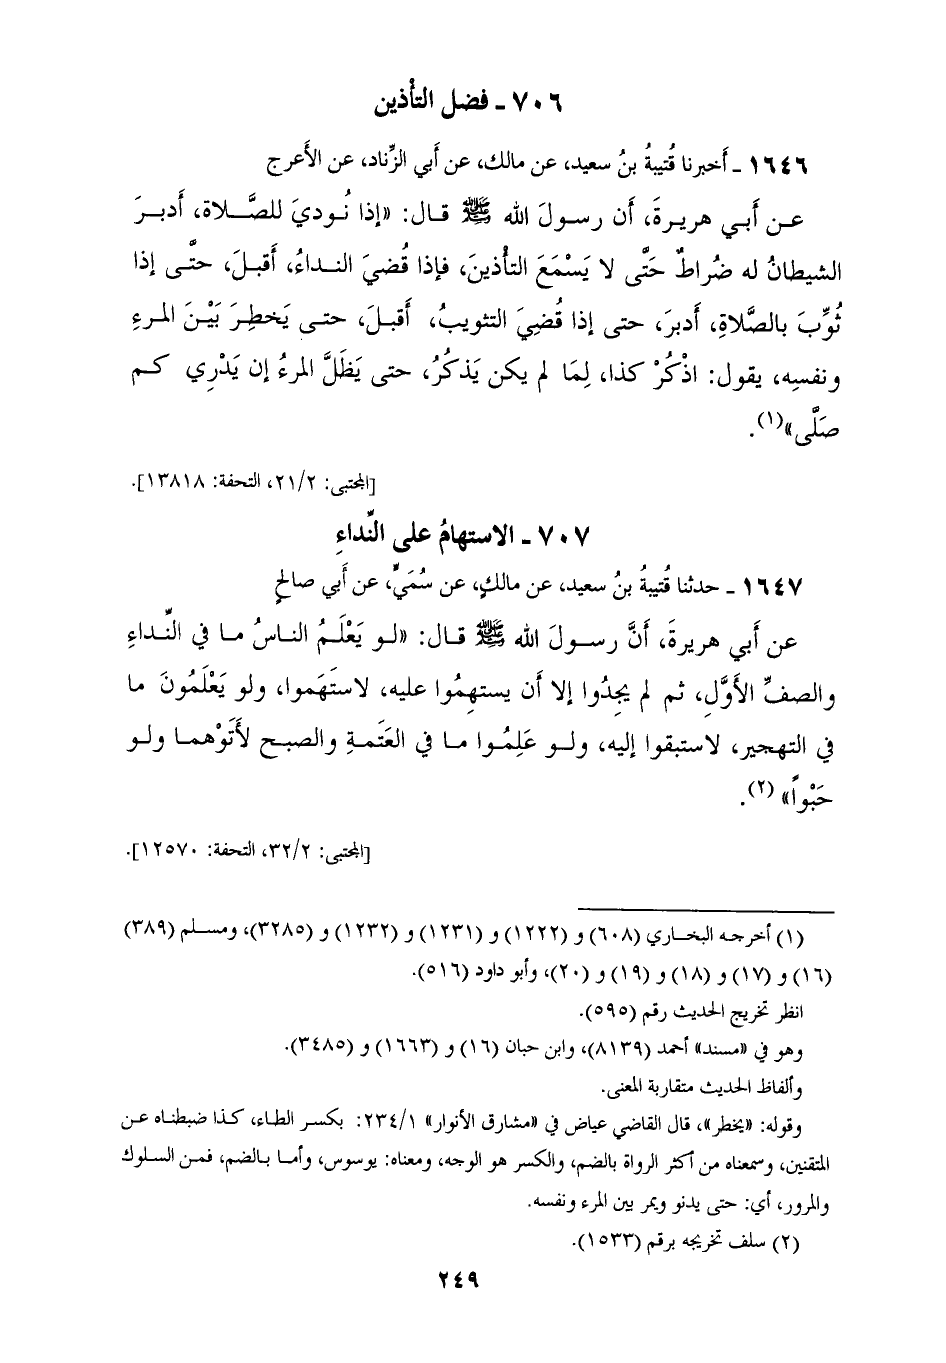 ٧٠٦ ـ فضل التأذين
١٦٤٦ ـ أخبرنا قُتيبةُ بنُ سعيد، عن مالك، عن أَبي الزِّناد، عن الأَعرج
عن أَبي هريرةَ، أن رسولَ الله ﷺ قال: «إذا نُوديَ للصَّلاة، أَدبرَ
الشيطانُ له ضُراطٌ حَتَّى لا يَسْمَعَ التأْذينَ، فإذا قُضيَ النداءُ، أَقبلَ، حتَّى إذا
ثُوِّبَ بالصَّلاةِ، أَدبرَ، حتى إذا قُضِيَ التثويبُ، أَقبلَ، حتى يَخطِرَ بَيْنَ المرءِ
ونفسِه، يقول: اذْكُرْ كذا، لِمَا لم يكن يَذكُرُ، حتى يَظَلَّ المرءُ إن يَدْرِي كم
صَلَّى»(١).
[المجتبى: ٢١/٢، التحفة: ١٣٨١٨].
٧٠٧ ـ الاستهامُ على النِّداءِ
١٦٤٧ ـ حدثنا قُتيبةُ بنُ سعيد، عن مالكٍ، عن سُمَيٍّ، عن أَبي صالحٍ
عن أَبي هريرةَ، أَنَّ رسولَ الله ﷺ قال: «لو يَعْلَمُ الناسُ ما في النِّداءِ
والصفِّ الأَوَّلِ، ثم لم يجِدُوا إلا أن يستهِمُوا عليه، لاستَهَموا، ولو يَعْلَمُونَ ما
في التهجير، لاستبقوا إليه، ولو عَلِمُوا ما في العَتَمةِ والصبح لأَتَوْهما ولو
حَبْواً» (٢).
[المجتبى: ٣٢/٢، التحفة: ١٢٥٧٠].
(١) أخرجه البخاري (٦٠٨) و (١٢٢٢) و (١٢٣١) و (١٢٣٢) و (٣٢٨٥)، ومسلم (٣٨٩)
(١٦) و (١٧) و (١٨) و (١٩) و (٢٠)، وأبو داود (٥١٦).
انظر تخريج الحديث رقم (٥٩٥).
وهو في «مسند» أحمد (٨١٣٩)، وابن حبان (١٦) و (١٦٦٣) و (٣٤٨٥).
وألفاظ الحديث متقاربة المعنى.
وقوله: «يخطر»، قال القاضي عياض في «مشارق الأنوار» ٢٣٤/١: بكسر الطاء، كذا ضبطناه عن
المتقنين، وسمعناه من أكثر الرواة بالضم، والكسر هو الوجه، ومعناه: يوسوس، وأما بالضم، فمن السلوك
والمرور، أي: حتى يدنو ويمر بين المرء ونفسه.
(٢) سلف تخريجه برقم (١٥٣٣).
٢٤٩